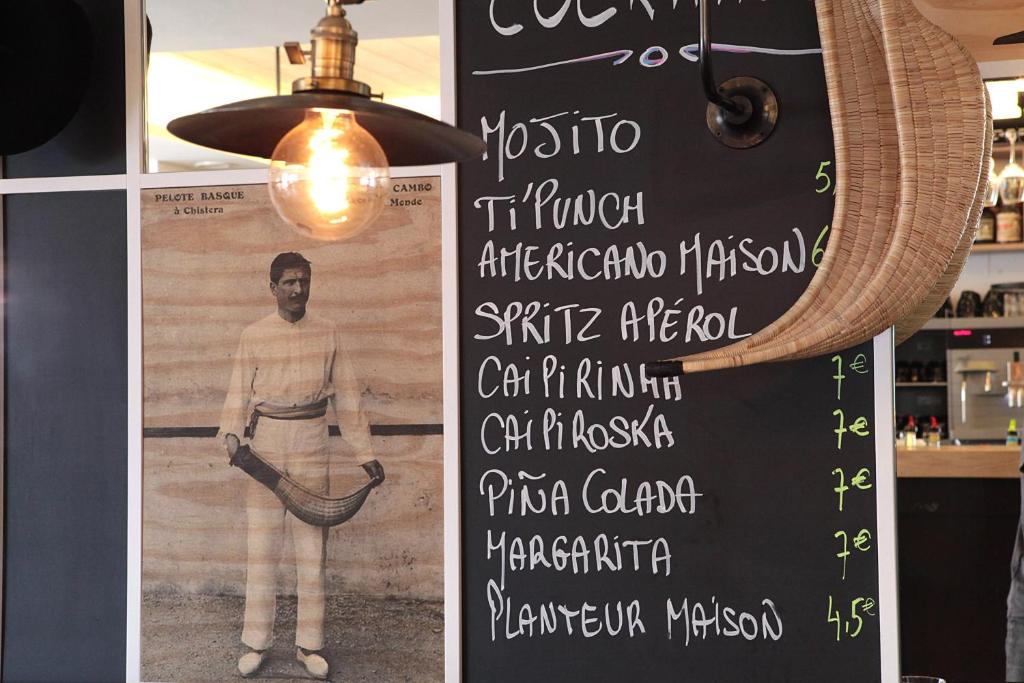 PELOTE BASQUE
à Chistera
CAMBO
Mende
MOJITO
TI'PUNCH 5,
AMERICANO MAISON 6
SPRITZ APÉROL
CAIPIRINHA 7€
CAIPIROSKA 7€
PIÑA COLADA 7€
MARGARITA 7€
PLANTEUR MAISON 4,5€